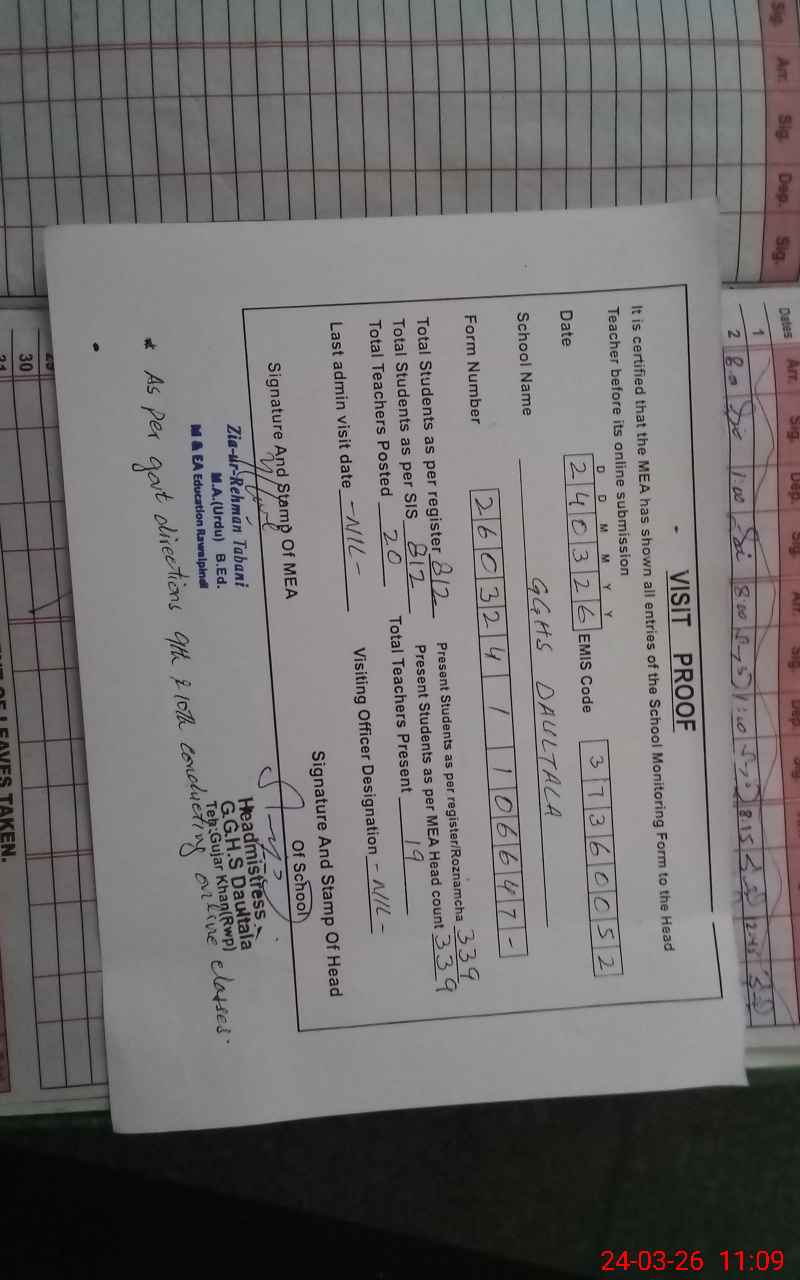 VISIT PROOF
It is certified that the MEA has shown all entries of the School Monitoring Form to the Head
Teacher before its online submission
D D M M Y Y
Date 240326 EMIS Code 37360052
School Name GGHS DAULTALA
Form Number 260324 1 106647-
Total Students as per register 812 Present Students as per register/Roznamcha 339
Total Students as per SIS 812 Present Students as per MEA Head count 339
Total Teachers Posted 20 Total Teachers Present 19
Last admin visit date -NIL- Visiting Officer Designation -NIL-
Signature And Stamp Of MEA
Signature And Stamp Of Head
Of School
Zia-ur-Rehman Tabani
M.A.(Urdu) B.Ed.
M & EA Education Rawalpindi
Headmistress
G.G.H.S Daultala
Teh: Gujar Khan(Rwp)
* As per govt directions 9th & 10th conducting online classes.
Sig. Arr. Sig. Dep. Sig.
Dates Arr. Sig. Dep. Sig. Arr. Sig. Dep. Sig.
1
2 8.0 1:00 8:00 1:00 8:15
30
31
OF LEAVES TAKEN.
24-03-26 11:09